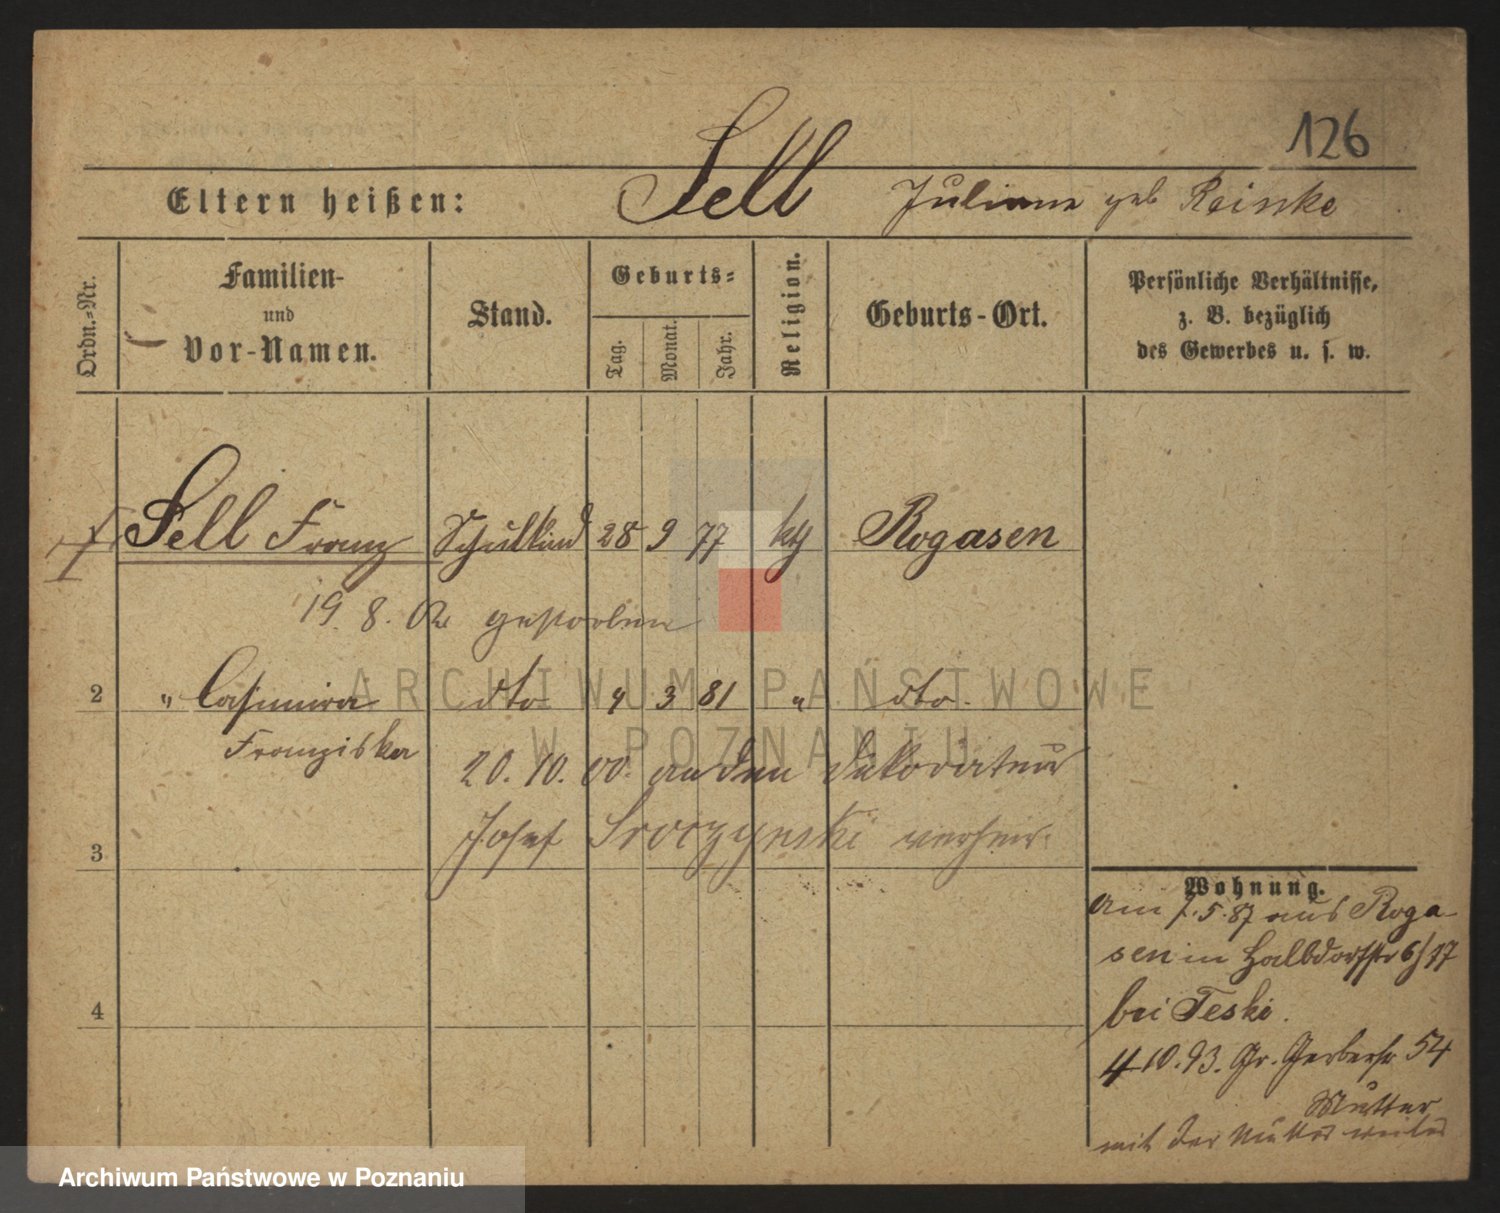 126
Eltern heißen: Sell Juliane geb Reinke
Ordn.-Nr.
Familien-
und
Vor-Namen.
Stand.
Geburts-
Tag.
Monat.
Jahr.
Religion.
Geburts-Ort.
Persönliche Verhältnisse,
z. B. bezüglich
des Gewerbes u. s. w.
Sell Franz Schulkind 28 9 77 kth Rogasen
19. 8. 02 gestorben
2 " Casimira dto 4 3 81 " dto.
Franziska
20. 10. 00. an den Dekorateur
Josef Sroczynski verheir.
3
4
Wohnung.
Am 7.5.87 aus Roga-
sen in Halbdorfstr 6/17
bei Teske.
4 10.93. Gr. Gerberstr 54
Mutter
mit der Mutter weiter
ARCHIWUM PAŃSTWOWE
W POZNANIU
Archiwum Państwowe w Poznaniu